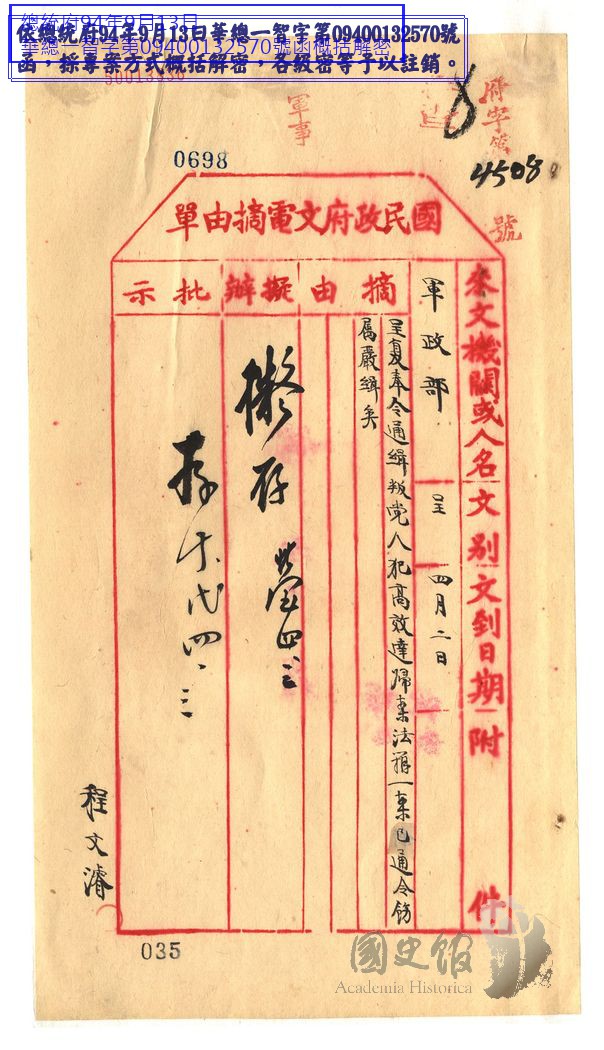 依總統府94年9月13日華總一智字第09400132570號
函，採專案方式概括解密，各級密等予以註銷。
總統府94年9月13日
華總一智字第09400132570號函概括解密
軍事
府字第
4508
號
0698
國民政府文電摘由單
來文機關或人名
文別
文到日期
附件
軍政部
呈
四月二日
摘由
擬辦
批示
呈复奉令通緝叛党人犯高效達歸案法辦一案已通令飭
属嚴緝矣
擬存
四、三
存
四、三
程文濬
035
國史館
Academia Historica